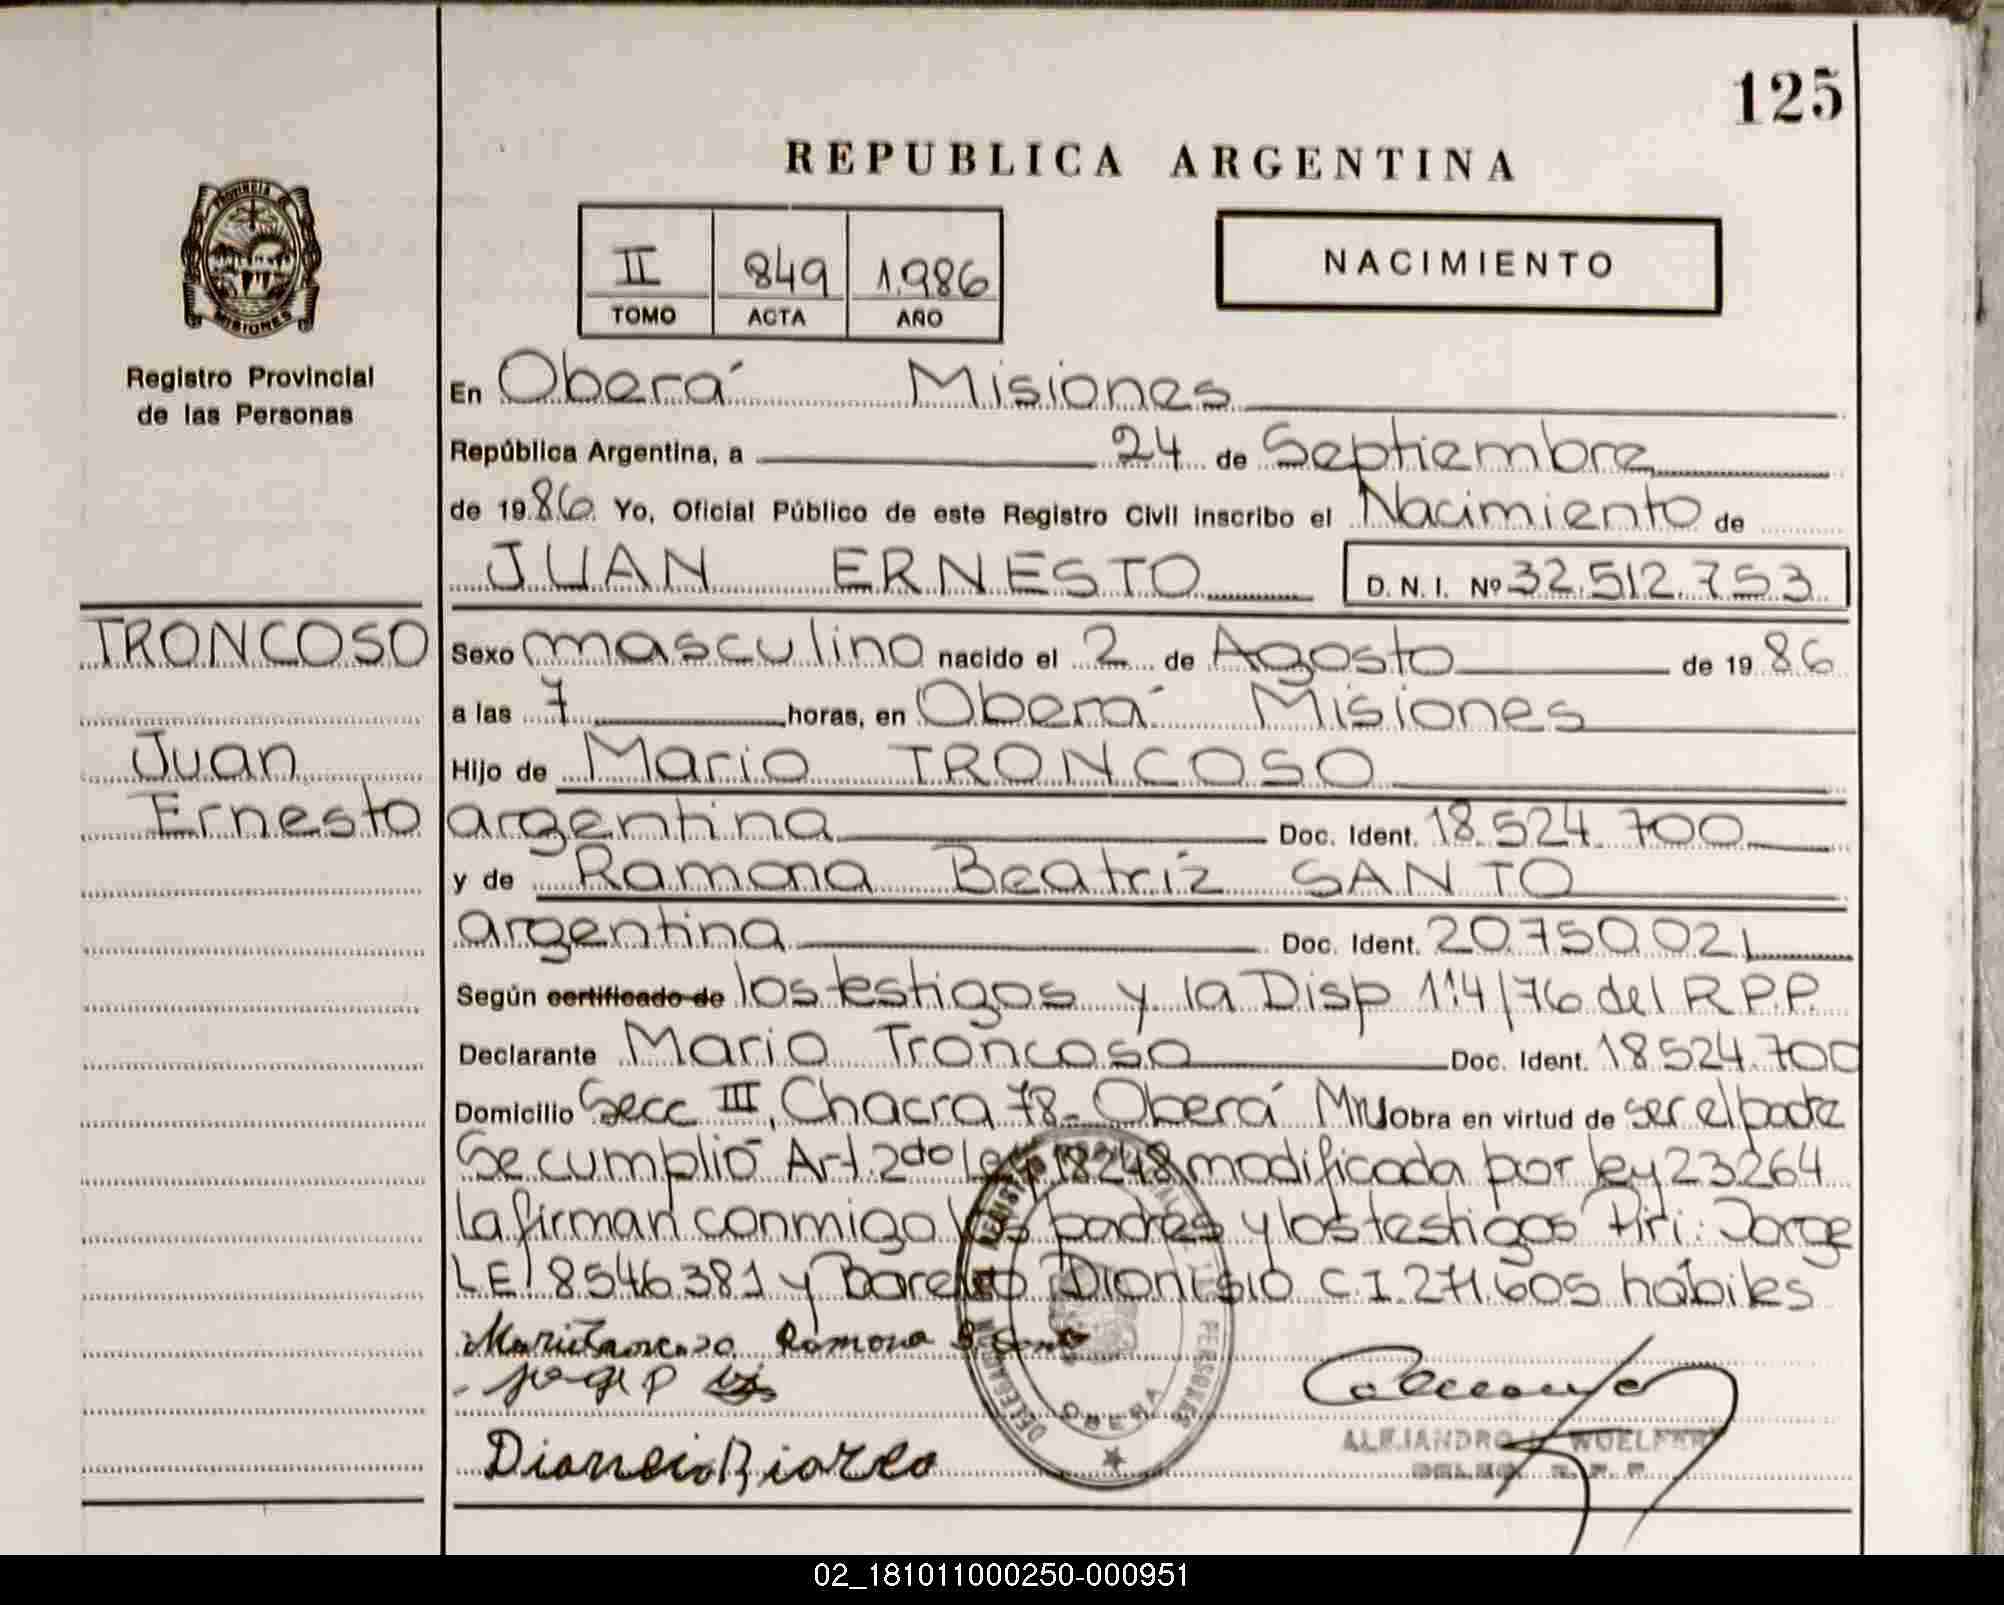 125
REPUBLICA ARGENTINA
PROVINCIA
MISIONES
Registro Provincial
de las Personas
II 849 1.986
TOMO ACTA AÑO
NACIMIENTO
En Oberá Misiones
República Argentina, a 24 de Septiembre
de 1986 Yo, Oficial Público de este Registro Civil inscribo el Nacimiento de
JUAN ERNESTO D. N. I. Nº 32.512.753
TRONCOSO
Juan
Ernesto
Sexo masculino nacido el 2 de Agosto de 1986
a las 7 horas, en Oberá Misiones
Hijo de Mario TRONCOSO
argentina Doc. Ident. 18.524.700
y de Ramona Beatriz SANTO
argentina Doc. Ident. 20.750.021
Según certificado de los testigos y la Disp 114/76 del R.P.P.
Declarante Mario Troncoso Doc. Ident. 18524.700
Domicilio Secc III, Chacra 78- Oberá Obra en virtud de ser el padre
Se cumplió Art. 2do Ley 18248 modificada por ley 23264
la firman conmigo los padres y los testigos Piri: Jorge
LE 8546.381 y Dionisio C.I. 271.605 hábiles
Ramona
OBERA
ALEJANDRO
02_181011000250-000951